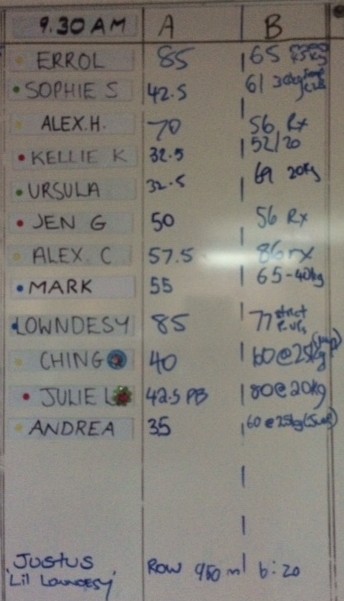 9.30 AM A B
ERROL 85 65
SOPHIE S 42.5 61 30kg
ALEX.H. 70 56 Rx
KELLIE K 32.5 52/20
URSULA 32.5 69 20kg
JEN G 50 56 Rx
ALEX. C 57.5 86 rx
MARK 55 65-40kg
LOWNDESY 85 77 strict
CHING 40 60@25kg
JULIE L 42.5 PB 80@20kg
ANDREA 35 60@25kg
JUSTUS Row 950 m 6:20
'Lil Lowndesy'